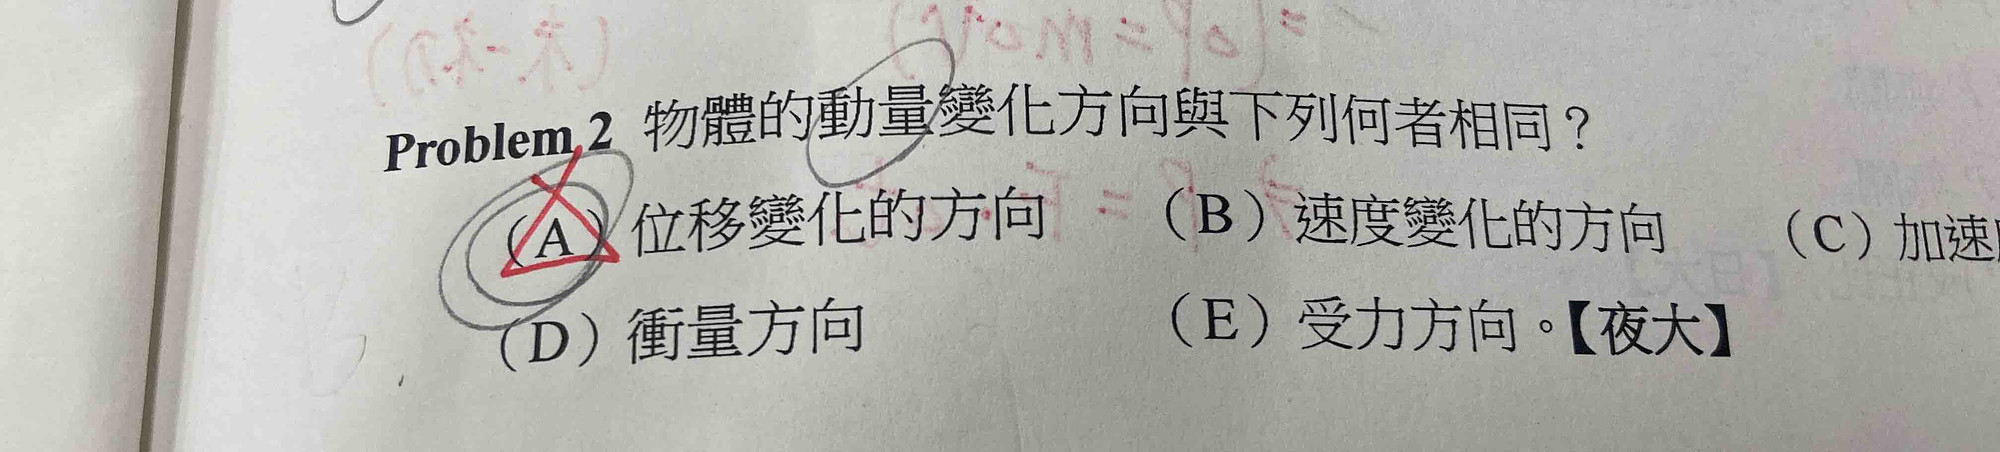 Problem 2 物體的動量變化方向與下列何者相同？
（A）位移變化的方向 （B）速度變化的方向 （C）加速
（D）衝量方向 （E）受力方向。【夜大】